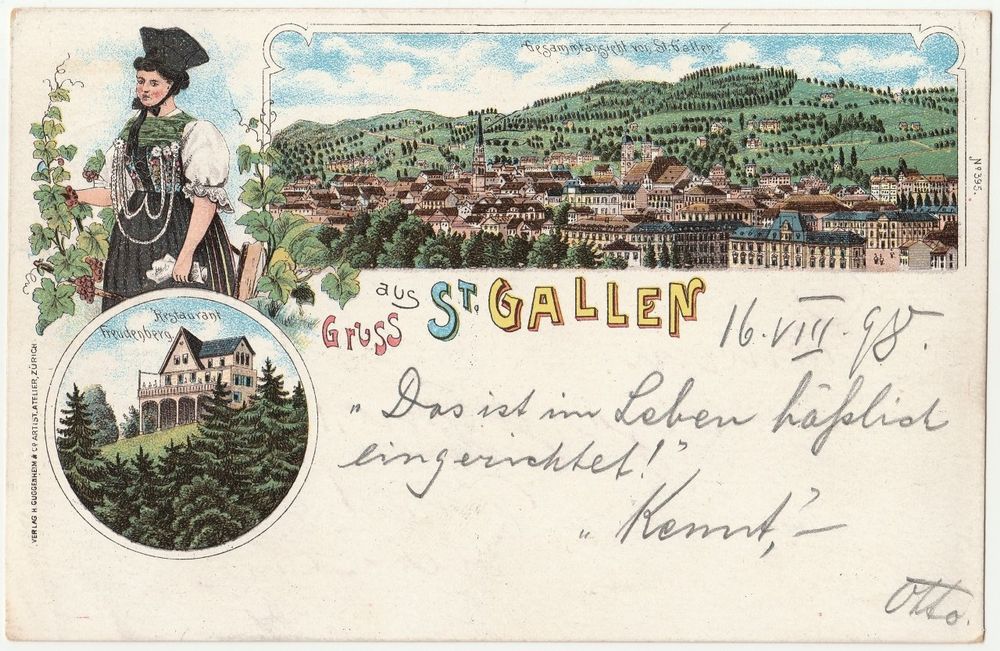 Gesammtansicht von St. Gallen.
No 395.
Gruss aus ST. GALLEN
Restaurant
Freudenberg
VERLAG H. GUGGENHEIM & Co ARTIST. ATELIER, ZÜRICH
16. VIII. 98.
„Das ist im Leben häßlich
eingerichtet!"
„Kennt,"–
Otto.